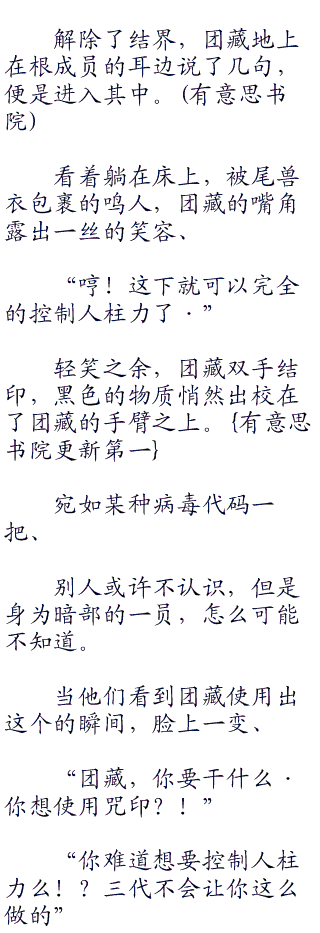 解除了结界，团藏地上
在根成员的耳边说了几句，
便是进入其中。(有意思书
院)
看着躺在床上，被尾兽
衣包裹的鸣人，团藏的嘴角
露出一丝的笑容、
“哼！这下就可以完全
的控制人柱力了·”
轻笑之余，团藏双手结
印，黑色的物质悄然出校在
了团藏的手臂之上。{有意思
书院更新第一}
宛如某种病毒代码一
把、
别人或许不认识，但是
身为暗部的一员，怎么可能
不知道。
当他们看到团藏使用出
这个的瞬间，脸上一变、
“团藏，你要干什么·
你想使用咒印？！”
“你难道想要控制人柱
力么！？三代不会让你这么
做的”